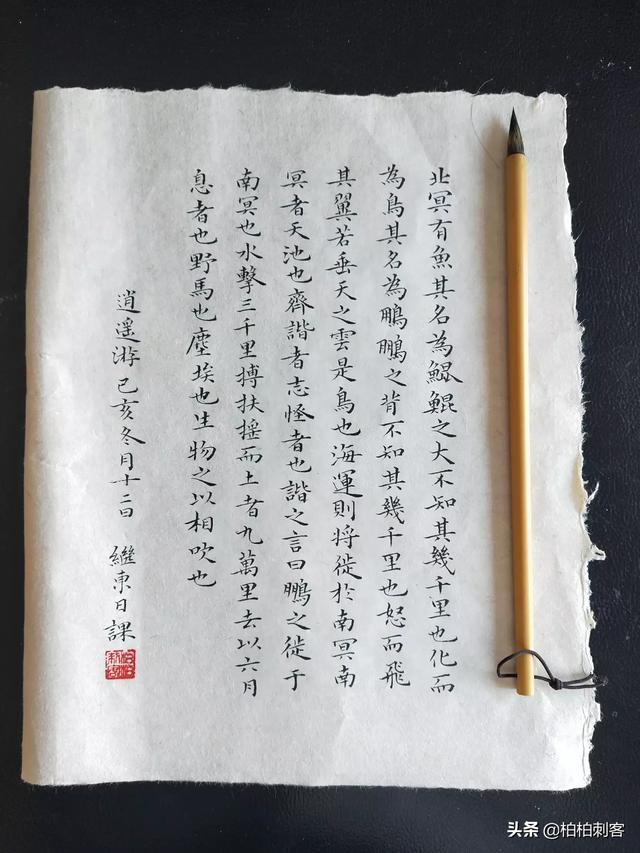 北冥有魚其名為鯤鯤之大不知其幾千里也化而
為鳥其名為鵬鵬之背不知其幾千里也怒而飛
其翼若垂天之雲是鳥也海運則將徙於南冥南
冥者天池也齊諧者志怪者也諧之言曰鵬之徙于
南冥也水擊三千里摶扶摇而上者九萬里去以六月
息者也野馬也塵埃也生物之以相吹也
逍遥游己亥冬月十二日 繼東日課
头条 @柏柏刺客